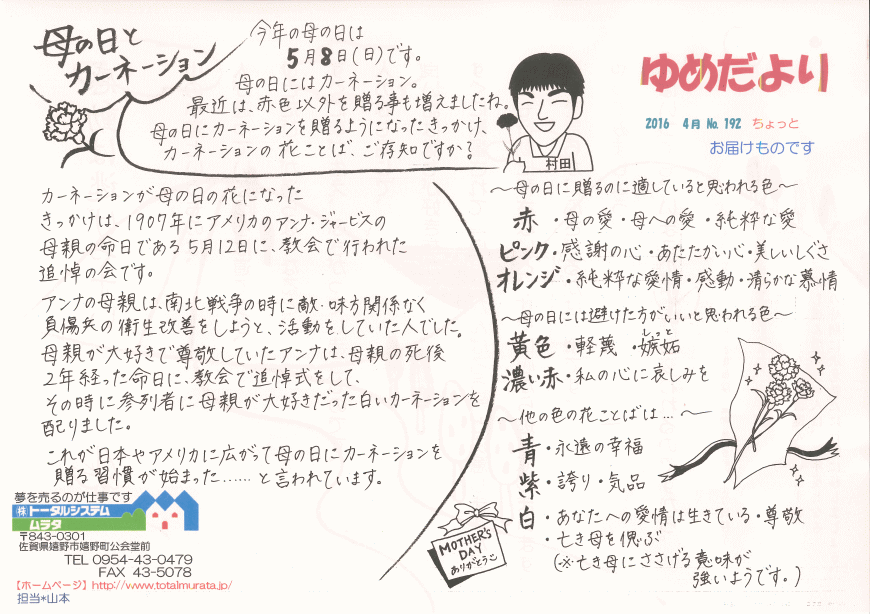 母の日と
カーネーション
今年の母の日は
5月8日(日)です。
母の日にはカーネーション。
最近は、赤色以外を贈る事も増えましたね。
母の日にカーネーションを贈るようになったきっかけ、
カーネーションの花ことば、ご存知ですか?
村田
ゆめだより
2016 4月 No. 192 ちょっと
お届けものです
カーネーションが母の日の花になった
きっかけは、1907年にアメリカのアンナ・ジャービスの
母親の命日である5月12日に、教会で行われた
追悼の会です。
アンナの母親は、南北戦争の時に敵・味方関係なく
負傷兵の衛生改善をしようと、活動をしていた人でした。
母親が大好きで尊敬していたアンナは、母親の死後
2年経った命日に、教会で追悼式をして、
その時に参列者に母親が大好きだった白いカーネーションを
配りました。
これが日本やアメリカに広がって母の日にカーネーションを
贈る習慣が始まった……と言われています。
夢を売るのが仕事です
㈱トータルシステム
ムラタ
〒843-0301
佐賀県嬉野市嬉野町公会堂前
TEL 0954-43-0479
FAX 43-5078
【ホームページ】http://www.totalmurata.jp/
担当*山本
~母の日に贈るのに適していると思われる色~
赤・母の愛・母への愛・純粋な愛
ピンク・感謝の心・あたたかい心・美しいしぐさ
オレンジ・純粋な愛情・感動・清らかな慕情
~母の日には避けた方がいいと思われる色~
しっと
黄色・軽蔑・嫉妬
濃い赤・私の心に哀しみを
~他の色の花ことばは…~
青・永遠の幸福
紫・誇り・気品
白・あなたへの愛情は生きている・尊敬
・亡き母を偲ぶ
(※亡き母にささげる意味が
強いようです。)
MOTHER'S
DAY
ありがとう